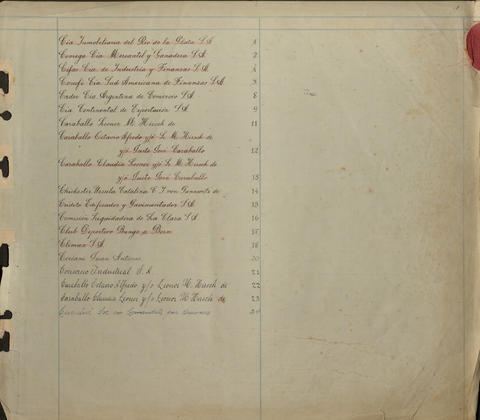 Cia Inmobiliaria del Rio de la Plata S.A. 1
Comega Cia Mercantil y Ganadera S.A. 2
Cifar Cia de Industria y Finanzas S.A.
Consafi Cia Sud Americana de Finanzas S.A.
Cadec Cia Argentina de Comercio S.A. 8
Cia Continental de Exportación S.A. 9
Caraballo Leonor M. Hirsch de 11
Caraballo Octavio Alfredo y/o L. M. Hirsch de
y/o Justo José Caraballo 12
Caraballo Claudia Leonor y/o L. M. Hirsch de
y/o Justo José Caraballo 13
Chichester Ursula Catalina C. T. von 14
Crédito Edificador y Pavimentador S.A. 15
Comisión Liquidadora de La Clara S.A. 16
Club Deportivo Bunge y Born 17
Climax S.A. 18
Juan Antonio 20
Consorcio Industrial S.A. 21
Caraballo Octavio Alfredo y/o Leonor M. Hirsch de 22
Caraballo Claudia Leonor y/o Leonor M. Hirsch de 23
Soc en Comandita por Acciones 24